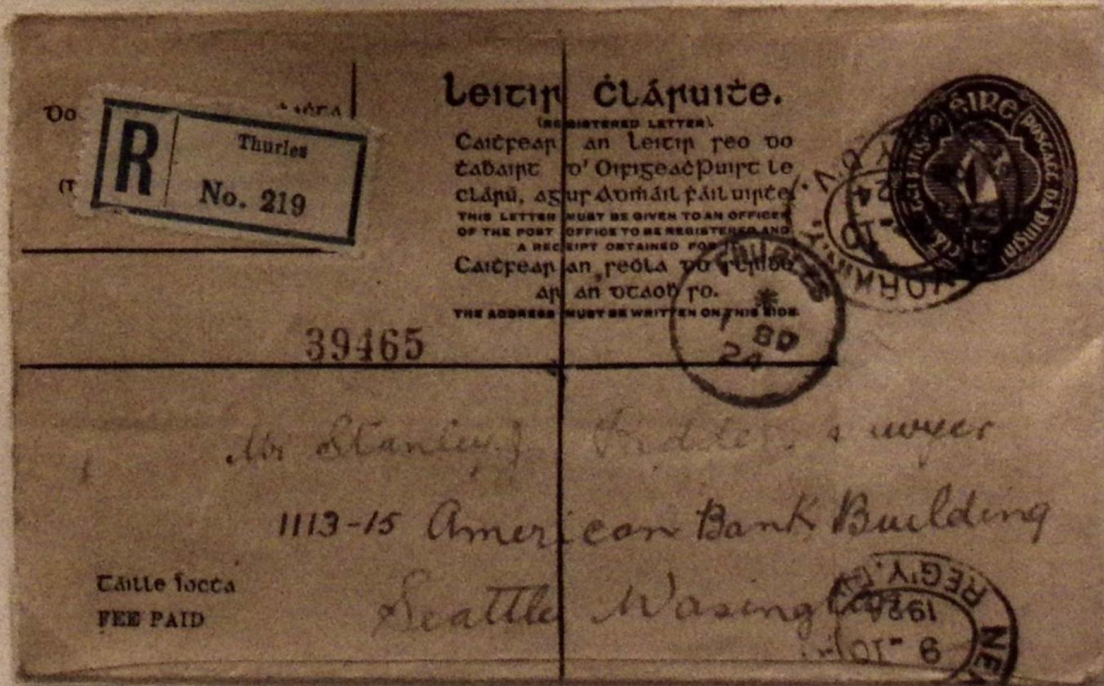 Leitir Ċláruiṫe.
(REGISTERED LETTER).
Caiṫfear an leitir seo do
ṫaḃairt d'Oifigeaċ Puirt le
clárú, agus Admáil fáil uirṫe.
THIS LETTER MUST BE GIVEN TO AN OFFICER
OF THE POST OFFICE TO BE REGISTERED AND
A RECEIPT OBTAINED FOR
Caiṫfear an seóla do
ar an dtaoḃ so.
THE ADDRESS MUST BE WRITTEN ON THIS SIDE.
Do
R
Thurles
No. 219
39465
ÉIRE
POSTAGE
THURLES
1 SP
24
Mr Stanley J
1113-15 American Bank Building
Seattle Wasington
Táille íocṫa
FEE PAID
NEW
REG'Y.
9-10
1924